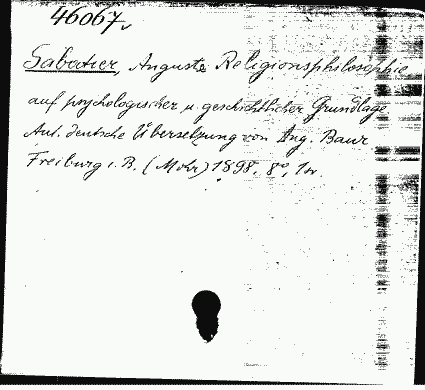 46067
Sabatier, Auguste Religionsphilosophie
auf psychologischer u. geschichtlicher Grundlage
Aut. deutsche Übersetzung von Aug. Baur
Freiburg i. B. (Mohr) 1898. 8°, 1 v.